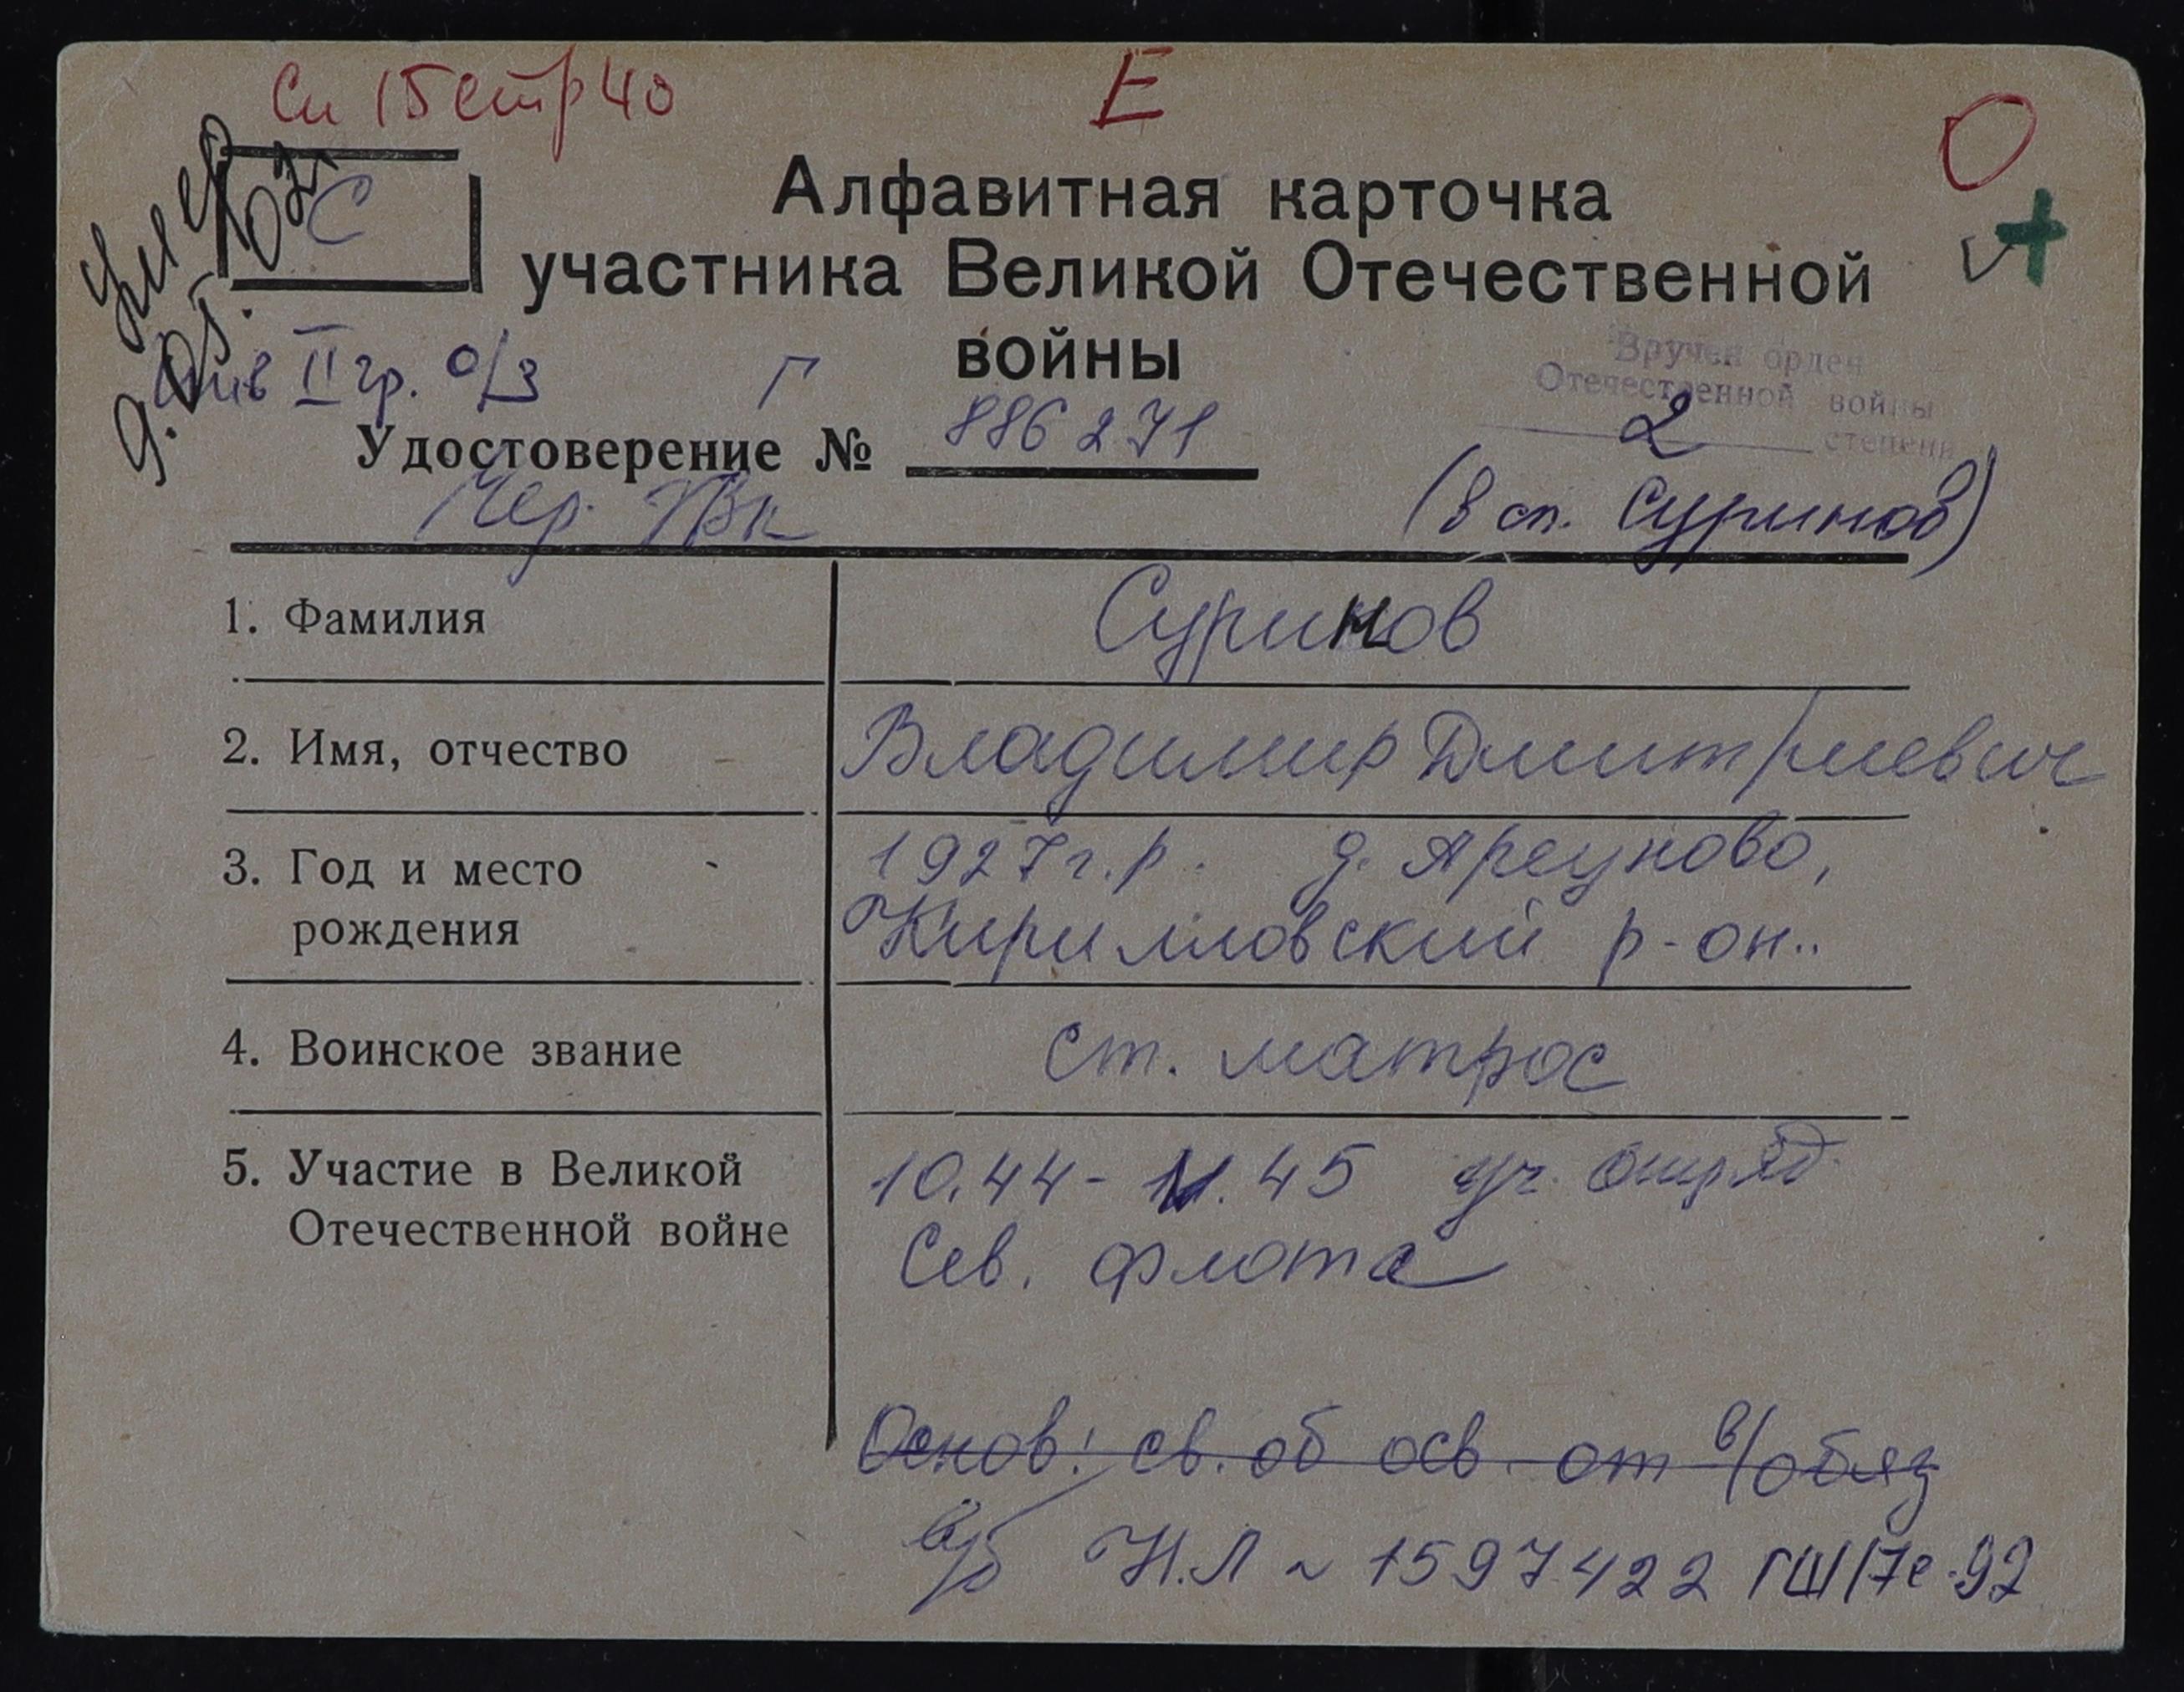 Сп 15 стр 40
Е
О
Умер
9.05.03г.
С
Алфавитная карточка
участника Великой Отечественной
войны
+
Инв II гр. о/з
Г
Вручен орден
Отечественной войны
2 степени
Удостоверение № 886271
Чер. РВК
(в сп. Суринов)
1. Фамилия Суринов
2. Имя, отчество Владимир Дмитриевич
3. Год и место 1927 г.р. д. Ярецново,
рождения Кирилловский р-он..
4. Воинское звание ст. матрос
5. Участие в Великой 10.44 - 11.45 уч. отряд
Отечественной войне Сев. флота
Основ: св. об осв. от в/обяз
в/б Н.Л ~ 1597422 ГШ/17е-92